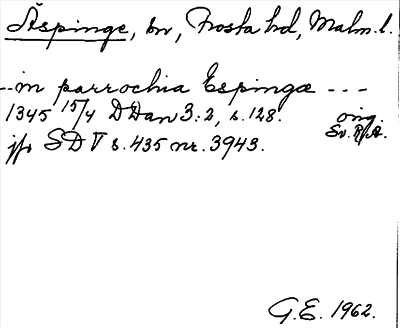 Äspinge, sn, Frosta hd, Malm. l.
--in parrochia Espingæ ---
1345 15/4 DDan 3:2, s. 128. orig. Sv. RA.
jfr SD V s. 435 nr. 3943.
G.E. 1962.